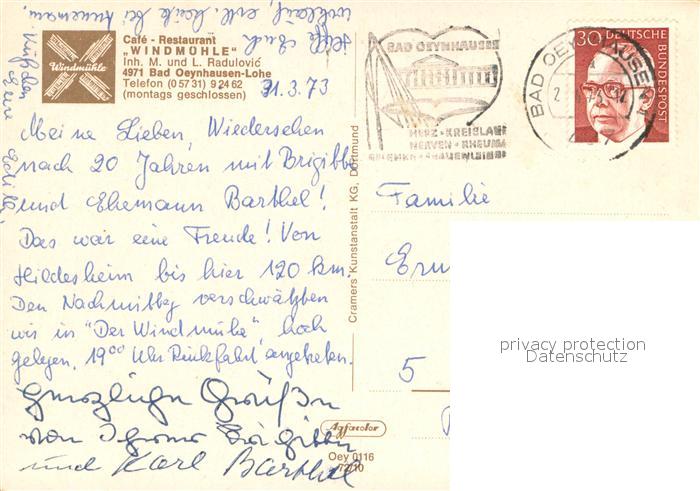 Café - Restaurant
„WINDMÜHLE“
Inh. M. und L. Radulović
4971 Bad Oeynhausen-Lohe
Telefon (0 57 31) 9 24 62
(montags geschlossen)
Windmühle
31.3.73
Meine Lieben, Wiedersehen
nach 20 Jahren mit Brigitte
und Ehemann Barthel!
Das war eine Freude! Von
Hildesheim bis hier 120 km.
Den Nachmittag verschwätzten
wir in "Der Windmühle", hoch
gelegen, 19⁰⁰ Uhr Rückfahrt angetreten.
Herzliche Grüße
von Brigitte
und Karl Barthel
Cramers Kunstanstalt KG, Dortmund
Agfacolor
Oey 0116
72/10
BAD OEYNHAUSEN
HERZ • KREISLAUF
NERVEN • RHEUMA
BAD OEYNHAUSEN 1
30 DEUTSCHE
BUNDESPOST
Familie
5
privacy protection
Datenschutz